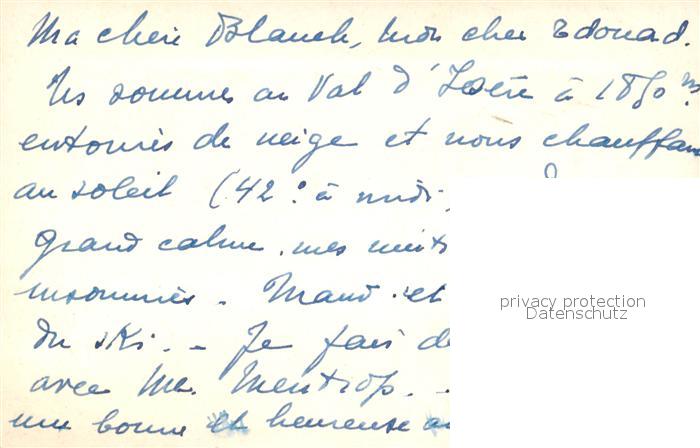 Ma chère Blanch, mon cher Edouard.
Ns sommes au Val d'Isère à 1850 m.
entourés de neige et nous chauffan
au soleil (42° à midi
grand calme. mes nuits
insomnies - Maud et
du ski. - Je fais de
avec Me.
une bonne et heureuse
privacy protection
Datenschutz